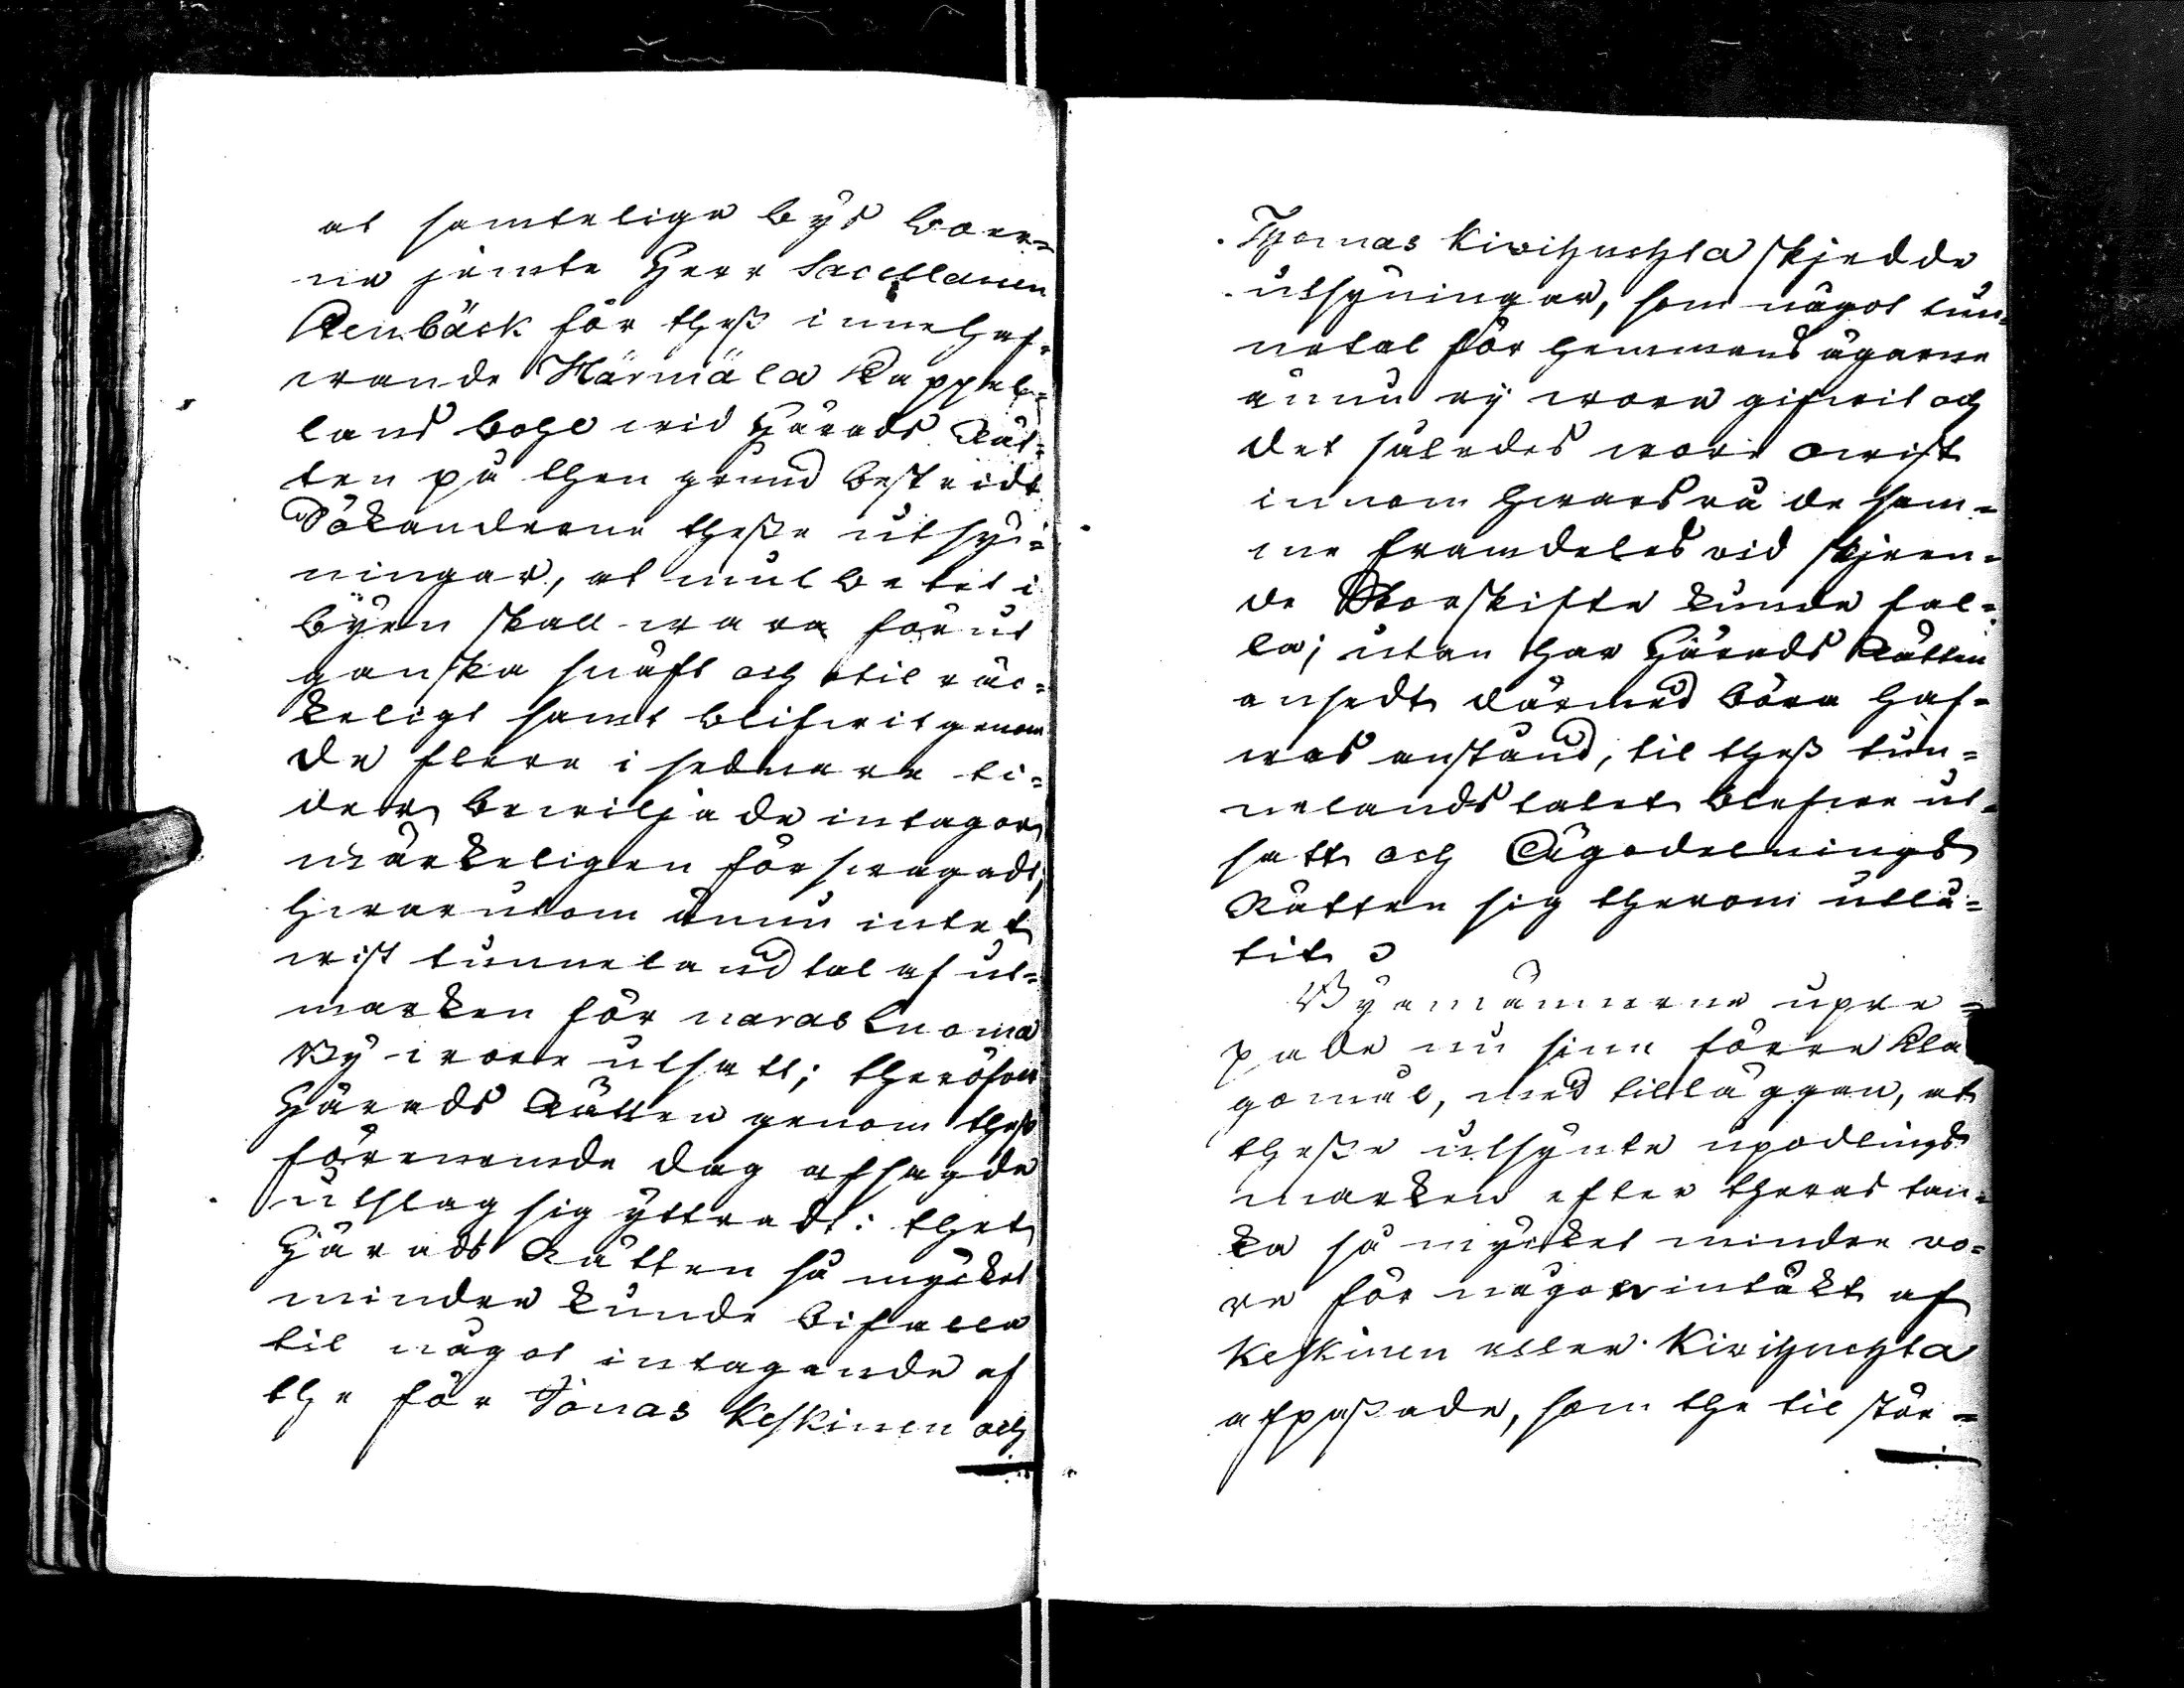 at samtelige bys boer=
ne jämte Herr Sacellanen
Renbäck för thess innehaf=
wande Härmälä Kappel=
lans bohl wid Härads Rät=
ten på then grund bestridt
Sökanderne thesse utsyi=
ningar, at mulbetet i
byen skall wara förut
ganska knaft och otilräc=
keligt samt blifwit genom
de flere i sednare ti=
der bewiljade intagor
märkeligen förswagadt,
hwarutom ännu intet
wist tunneland tal af ut=
marken för naraslnoma
By wore utsatt; theröfwer
Härads Rätten genom thess
förenemde dag afsagde
utslag sig yttradt: thet
Härads Rätten så mycket
mindre kunde bifalla
til något intagande af
the för Jonas Keskinen och
Thomas Kivihuchta skjedde
utsyningar, som något tun=
netal för hemmans ägarne
ännu ey wore gifwit och
det således wore owist
innom hwars rå de sam=
me framdeles vid skjeen=
de Storskifte kunde fal=
la; utan har Härads Rätten
ansedt därmed böra haf=
was anstånd, til thess tun=
nelandstalet blefwe ut=
satt och Ägodelnings
Rätten sig therom utlå=
tit
Byamännerne upre=
pade nu sine förre Kla
gomål, med tilläggan, at
thesse utsynte upodlings
marken efter theras tan=
ka så mycket mindre vo=
re för någon intäkt af
Keskinen eller Kivihuchta
afpassade, som the til stör=